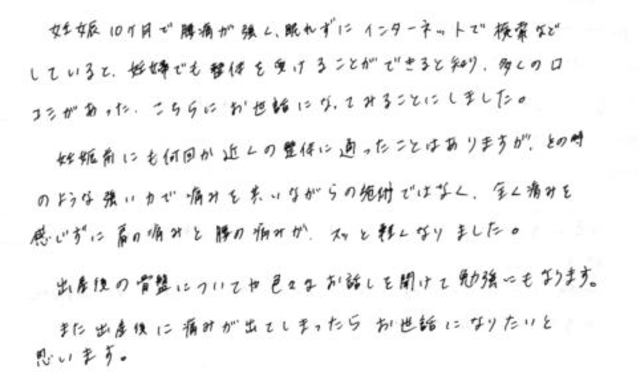 妊娠10ヶ月で腰痛が強く、眠れずにインターネットで検索など
していると、妊婦でも整体を受けることができると知り、多くの口
コミがあった、こちらにお世話になってみることにしました。
妊娠前にも何回か近くの整体に通ったことはありますが、その時
のような強い力で痛みを伴いながらの施術ではなく、全く痛みを
感じずに肩の痛みと腰の痛みが、スッと軽くなりました。
出産後の骨盤についてや色々なお話しを聞けて勉強にもなります。
また出産後に痛みが出てしまったらお世話になりたいと
思います。